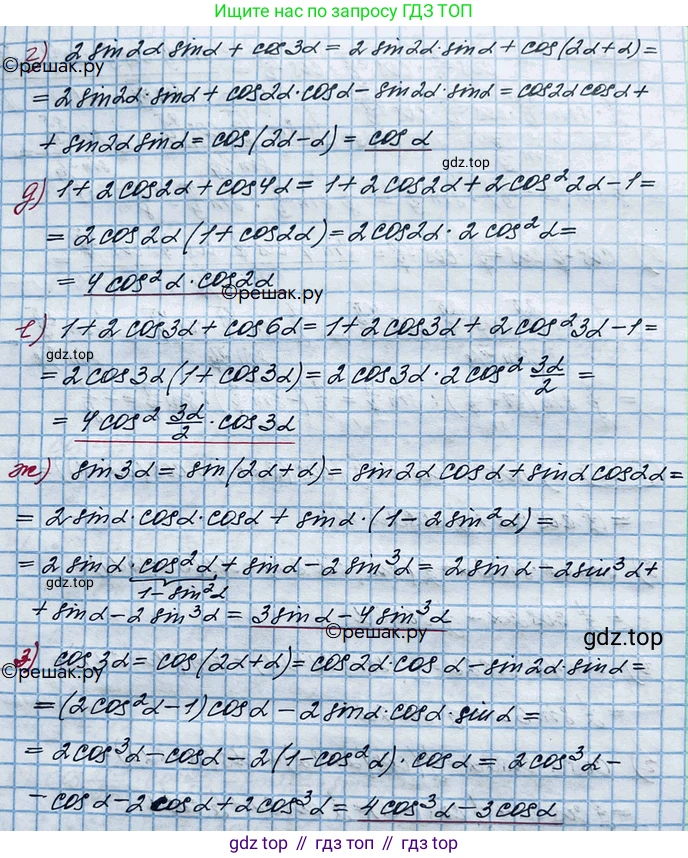 Ищите нас по запросу ГДЗ ТОП
г) 2 sin2α sinα + cos3α = 2 sin2α·sinα + cos(2α+α) =
©решак.ру
= 2 sin2α·sinα + cos2α·cosα − sin2α·sinα = cos2α cosα +
+ sin2α sinα = cos(2α−α) = cos α
gdz.top
д) 1 + 2 cos2α + cos4α = 1 + 2 cos2α + 2 cos² 2α − 1 =
= 2 cos 2α (1 + cos2α) = 2 cos2α · 2 cos² α =
= 4 cos² α · cos2α
©решак.ру
е) 1 + 2 cos3α + cos6α = 1 + 2 cos3α + 2 cos² 3α − 1 =
gdz.top
= 2 cos 3α (1 + cos3α) = 2 cos3α · 2 cos² 3α/2 =
= 4 cos² 3α/2 · cos3α
ж) sin3α = sin(2α+α) = sin2α cosα + sinα cos2α =
= 2 sinα · cosα · cosα + sinα · (1 − 2 sin² α) =
= 2 sinα · cos² α + sinα − 2 sin³ α = 2 sinα − 2 sin³ α +
1 − sin² α
gdz.top
+ sinα − 2 sin³ α = 3 sinα − 4 sin³ α
©решак.ру
gdz.top
з) cos3α = cos(2α+α) = cos2α·cos α − sin2α·sinα =
©решак.ру
= (2 cos² α − 1) cosα − 2 sinα · cosα · sinα =
= 2 cos³ α − cosα − 2(1 − cos² α) · cosα = 2 cos³ α −
− cosα − 2 cosα + 2 cos³ α = 4 cos³ α − 3 cosα
gdz.top // gdz.top // gdz.top // gdz.top